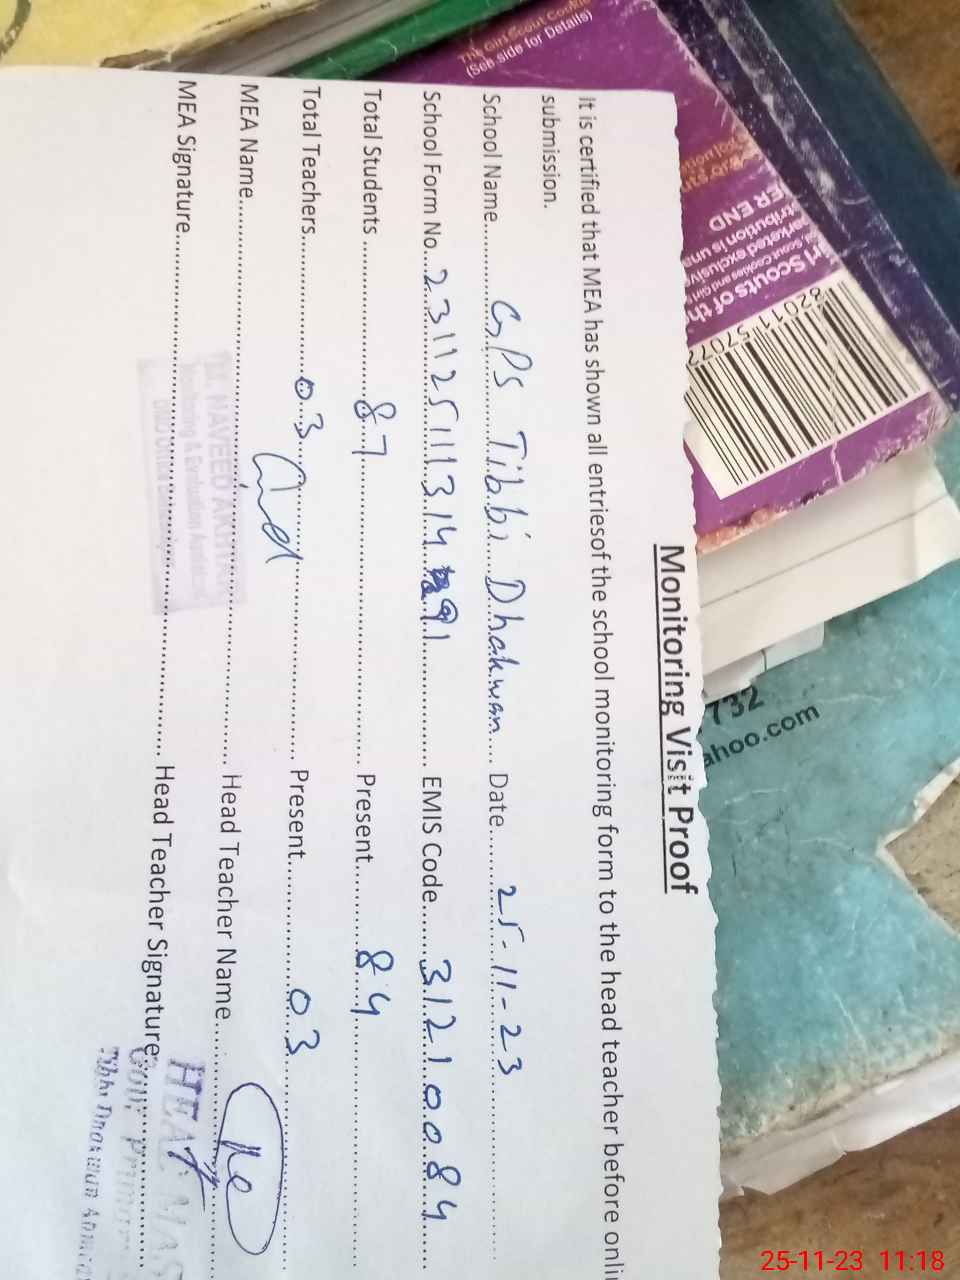 Monitoring Visit Proof
It is certified that MEA has shown all entriesof the school monitoring form to the head teacher before onli
submission.
School Name.......... GPS Tibbi Dhakwan .... Date.......... 25-11-23
School Form No... 23112511131491 .......... EMIS Code..... 31210084
Total Students .......... 87 .......... Present.......... 84
Total Teachers.......... 03 .......... Present.......... 03
MEA Name.......... Head Teacher Name..........
MEA Signature.......... Head Teacher Signature..........
NAVEED AKHTAR
Monitoring & Evaluation Assistant
HEAD MAS
Govt. Prim
Tibbi Dhakwan
The Girl Scout Cookie
(See side for Details)
ER END
tribution is una
arketed exclusiv
al scout cookies and Girl S
rl Scouts of the
82011 57072
732
ahoo.com
25-11-23 11:18